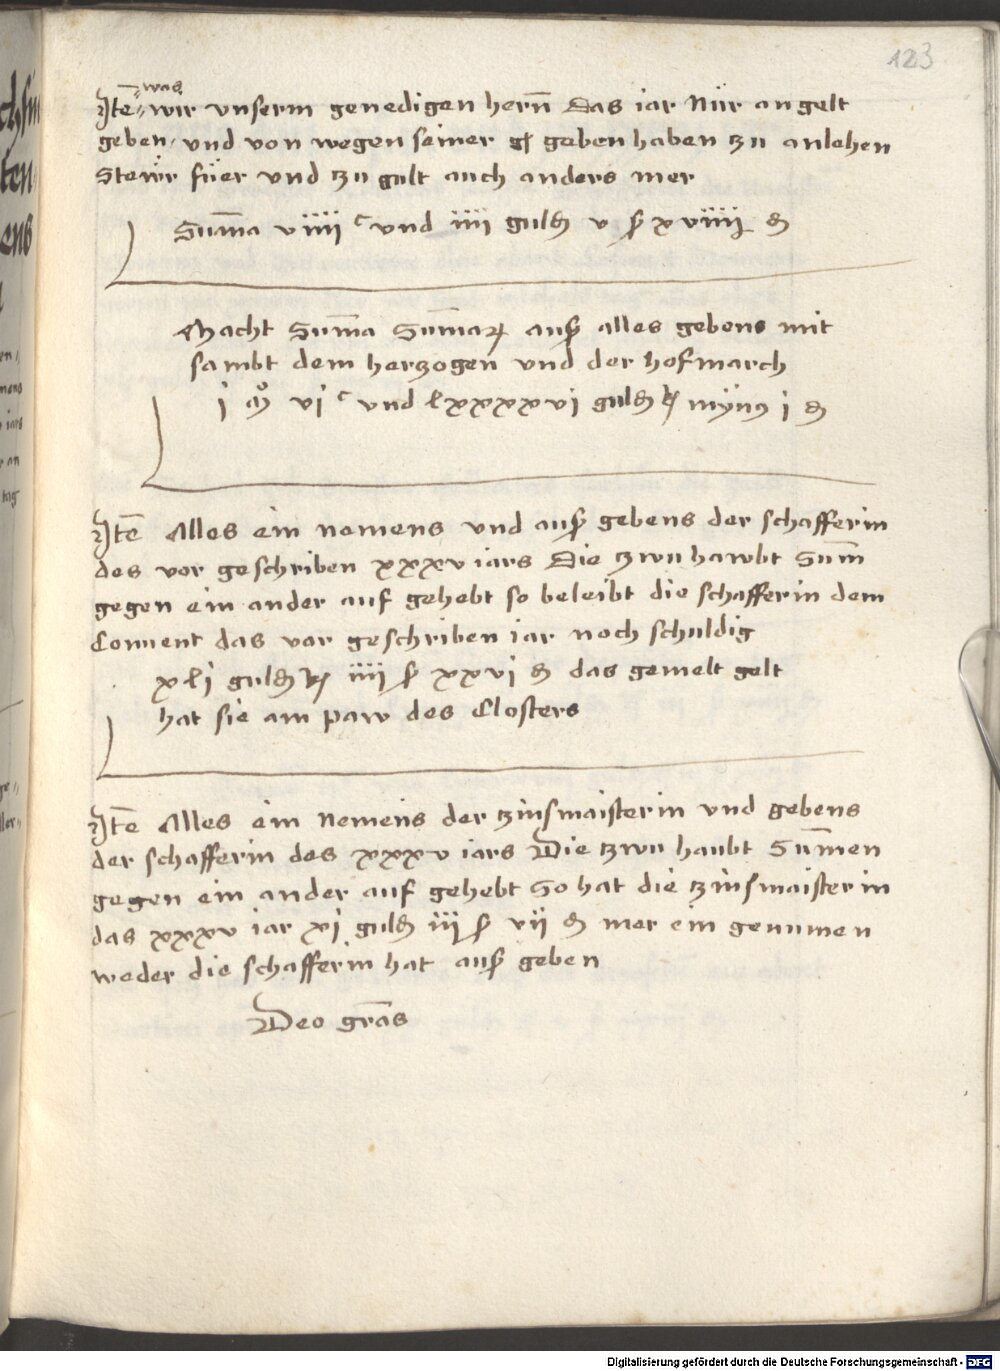 123
was
Itē wir vnserm genedigen hern̄ Das iar Nür an gelt
geben vnd von wegen seiner g geben haben zu anlehen
Stewr füer vnd zu gult auch anders mer
Sum̄a viiii c vnd iiii guld v ß xviiii d
Macht Sum̄a Sum̄aꝝ auß alles gebens mit
sambt dem herzogen vnd der hofmarch
i M vi c vnd lxxxxvi guld myn9 i d
Itē Alles ein nemens vnd auß gebens der schafferin
des vor geschriben xxxv iars Die zwu hawbt Sum̄
gegen ein ander auf gehebt so beleibt die schafferin dem
Conuent das vor geschriben iar noch schuldig
xli guld iiii ß xxvi d das gemelt gelt
hat sie am paw des Closters
Itē Alles ein Nemens der zinsmaisterin vnd gebens
der schafferin des xxxv iars Die zwu haubt Sum̄en
gegen ein ander auf gehebt So hat die zinsmaisterin
das xxxv iar xi guld iii ß vii d mer ein genumen
weder die schafferin hat auß geben
Deo gr̄as
Digitalisierung gefördert durch die Deutsche Forschungsgemeinschaft - DFG